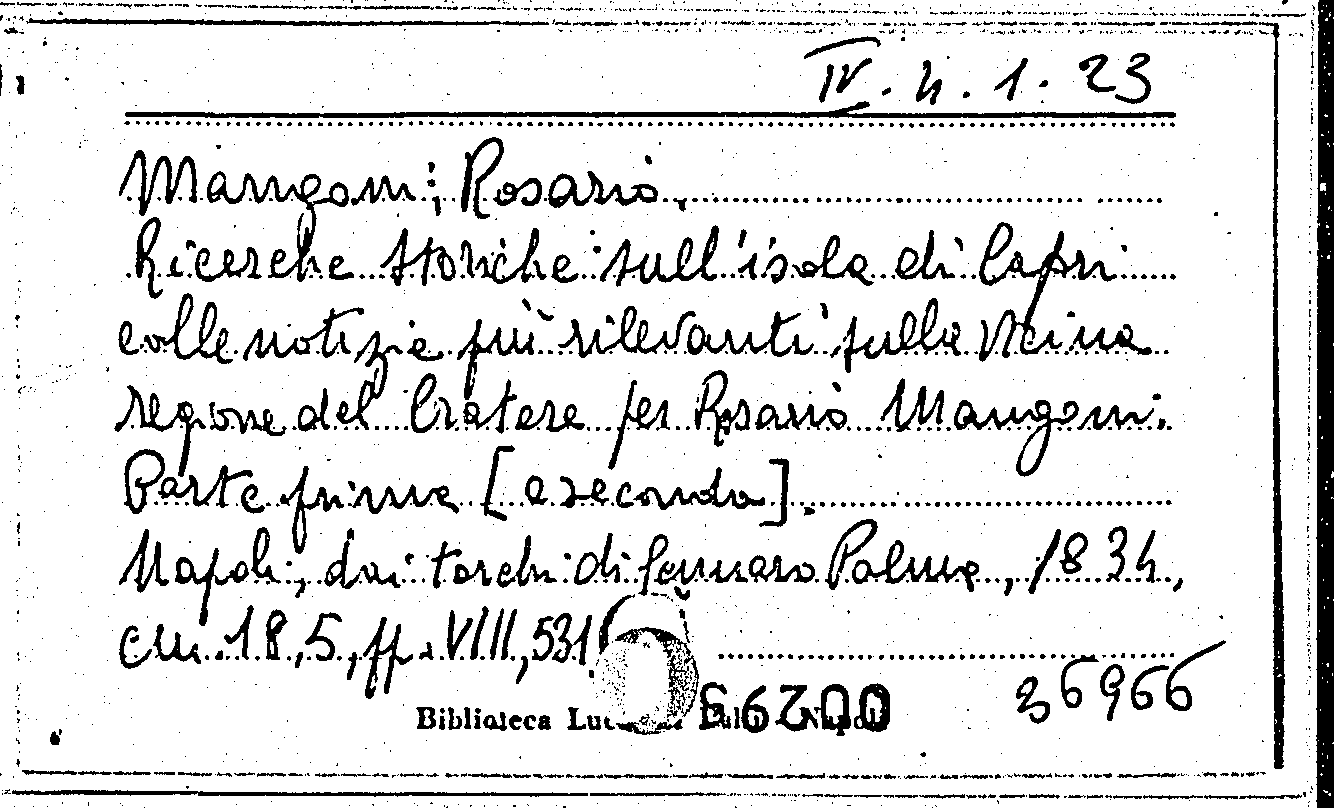 IV. 4. 1. 23
Mangoni, Rosario.
Ricerche storiche sull'isola di Capri
colle notizie più rilevanti sulla vicina
regione del Cratere per Rosario Mangoni.
Parte prima [e seconda].
Napoli, dai torchi di Gennaro Palma, 1834,
cm. 18,5, pp. VIII, 531
Biblioteca
36966